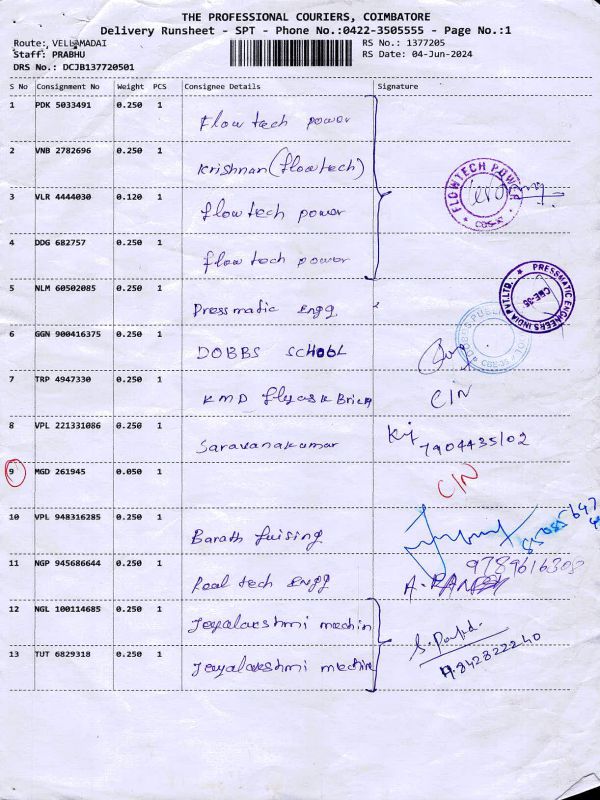 THE PROFESSIONAL COURIERS, COIMBATORE
Delivery Runsheet - SPT - Phone No.:0422-3505555 - Page No.:1
Route: VELLAMADAI RS No.: 1377205
Staff: PRABHU RS Date: 04-Jun-2024
DRS No.: DCJB137720501
S No Consignment No Weight PCS Consignee Details Signature
1 PDK 5033491 0.250 1
Flow tech power
2 VNB 2782696 0.250 1
Krishnan (flowtech)
3 VLR 4444030 0.120 1
flowtech power
FLOWTECH POWER
4 DDG 682757 0.250 1
flow tech power
5 NLM 60502085 0.250 1
Pressmatic Engg
PRESSMATIC ENGINEERS INDIA PVT.LTD.
6 GGN 900416375 0.250 1
DOBBS SCHOOL
7 TRP 4947330 0.250 1
KMD flyash Brick
C/N
8 VPL 221331086 0.250 1
Saravanakumar
7904435102
9 MGD 261945 0.050 1
C/N
10 VPL 948316285 0.250 1
Barath
11 NGP 945686644 0.250 1
Real tech Engg
9789616308
12 NGL 100114685 0.250 1
Jeyalakshmi machin
13 TUT 6829318 0.250 1
Jeyalakshmi machine